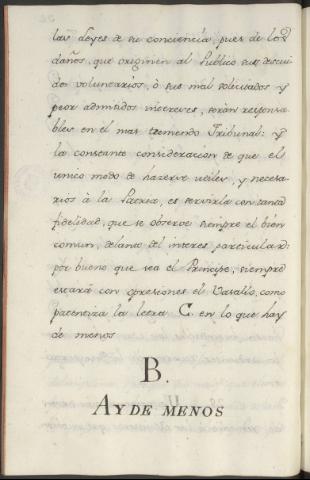 las Leyes de su conciencia, pues de los
daños, que originen al Publico sus descui-
dos voluntarios, ò sus mal solicitados y
peor admitidos intereses, serán responsa-
bles en el mas tremendo Tribunal: y
la constante consideracion de que el
unico modo de hacerse utiles, y necesa-
rios à la Patria, es servirla con tanta
fidelidad, que se observe siempre el bien
comun, delante del interes particular:
por bueno que sea el Principe, siempre
estará con opresiones el Vasallo, como
patentiza la letra C. en lo que hay
de menos
B.
AY DE MENOS